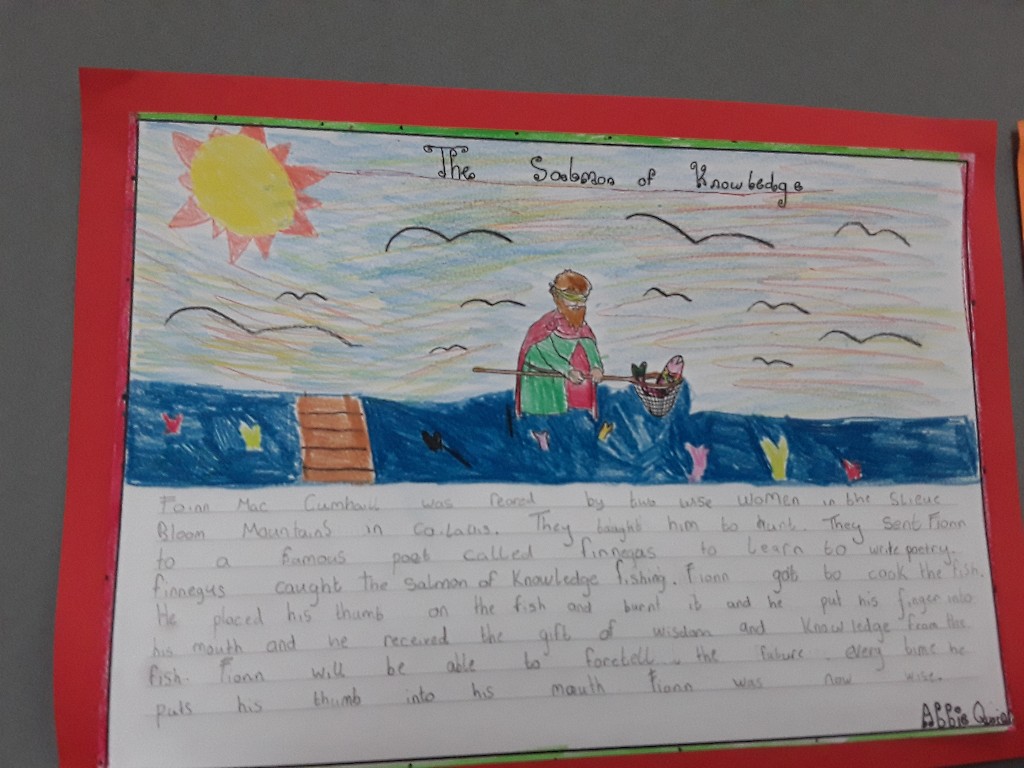 The Salmon of Knowledge
Foinn Mac Cumhaill was reared by two wise women in the Slieve
Bloom Mountains in Co. Laois. They taught him to hunt. They sent Fionn
to a famous poet called finnegas to learn to write poetry.
finnegus caught the salmon of Knowledge fishing. Fionn got to cook the fish.
He placed his thumb on the fish and burnt it and he put his finger into
his mouth and he received the gift of wisdom and Knowledge from the
fish. Fionn will be able to foretell the future every time he
puts his thumb into his mouth Fionn was now wise.
Abbie